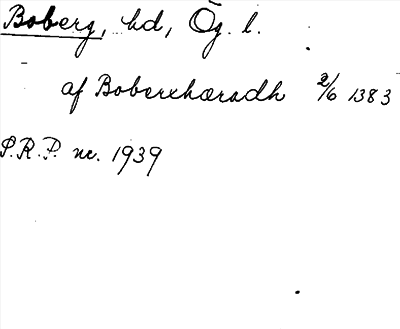 Boberg, hd, Ög. l.
af Boberxhæradh 2/6 1383
S.R.P. nr. 1939